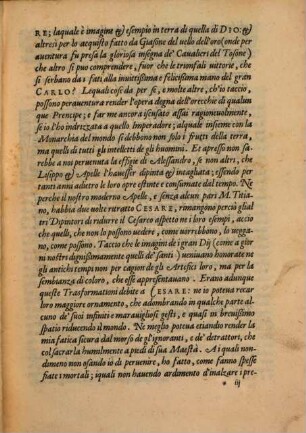 RE; laquale è imagine & esempio in terra di quella di DIO: &
altresi per lo acquisto fatto da Giasone del uello dell'oro (onde per
auentura fu presa la gloriosa insegna de' Caualieri del Tosone)
che altro si puo comprendere, fuor che le trionfali uittorie, che
si serbano da i fati alla inuittissima e felicissima mano del gran
CARLO? Lequali cose da per se, e molte altre, ch'io taccio,
possono perauentura render l'opera degna dell'orecchie di qualun
que Prencipe; e far me ancora iscusato assai ragioneuolmente,
se io l'ho indrizzata a quello Imperadore; alquale insieme con la
Monarchia del mondo si debbono non solo i frutti della terra,
ma quelli di tutti gli intelletti de gli huomini. Et appresso non sa
rebbe a noi peruenuta la effigie di Alessandro, se non altri, che
Lisippo & Apelle l'hauesser dipinta & intagliata; essendo per
tanti anni adietro le loro opre estinte e consumate dal tempo. Ne
perche il nostro moderno Apelle, e senza alcun pari M. Titia
no, habbia due uolte ritratto CESARE, rimangono perciò gli al
tri Dipintori di ridurre il Cesareo aspetto ne i loro esempi, accio
che quelli, che non lo possono uedere, come uorrebbono, lo uegga
no, come possono. Taccio che le imagini de i gran Dij (come a gior
ni nostri dignissimamente quelli de' santi) ueniuano honorate ne
gli antichi tempi non per cagion de gli Artefici loro, ma per la
sembianza di coloro, che esse appresentauano. Erano adunque
queste Trasformationi debite a CESARE: ne io poteua recar
loro maggiore ornamento, che adombrando in qualche parte al
cuno de' suoi infiniti e marauigliosi gesti, e quasi in breuissimo
spatio riducendo il mondo. Ne meglio poteua etiandio render la
mia fatica sicura dal morso de gl'ignoranti, e de' detrattori, che
col sacrarla humilmente a piedi di sua Maestà. A i quali non-
dimeno non osando io di peruenire, ho fatto, come fanno spesse
fiate i mortali; iquali non hauendo ardimento d'inalzare i pre-
* iij